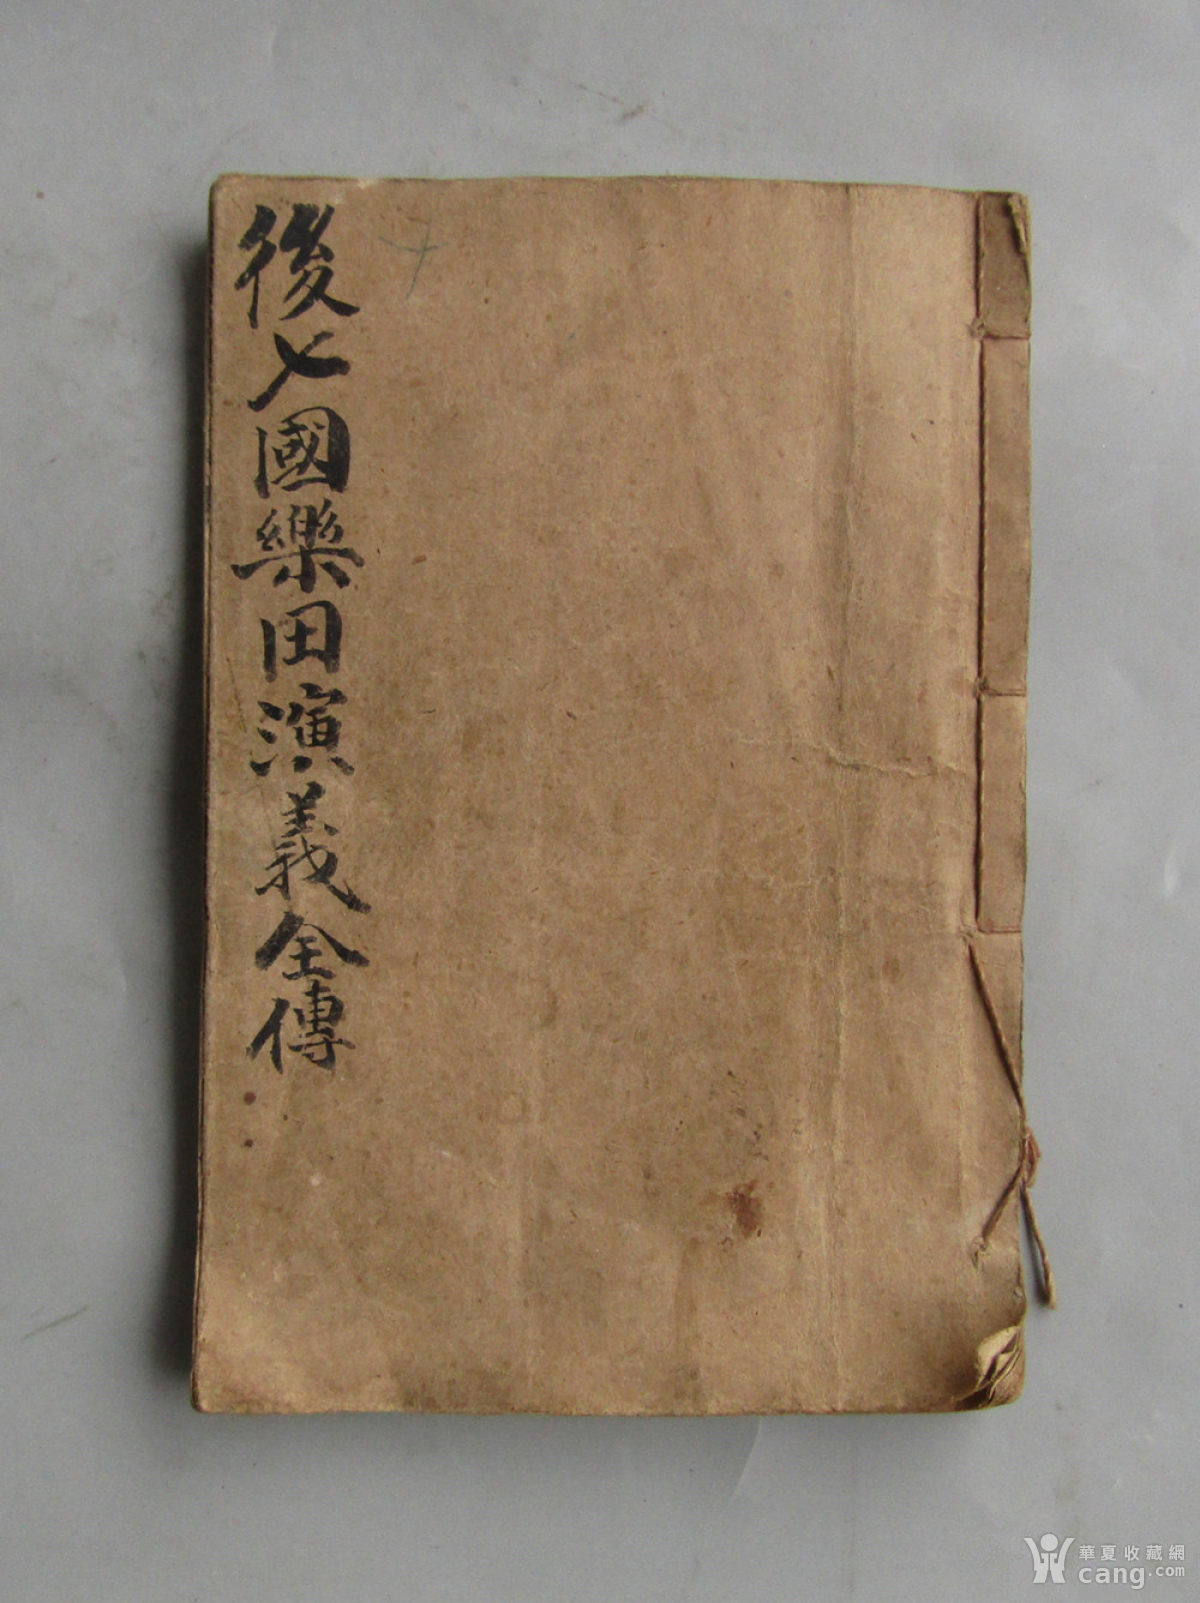 後七國樂田演義全傳
華夏收藏網
cang.com